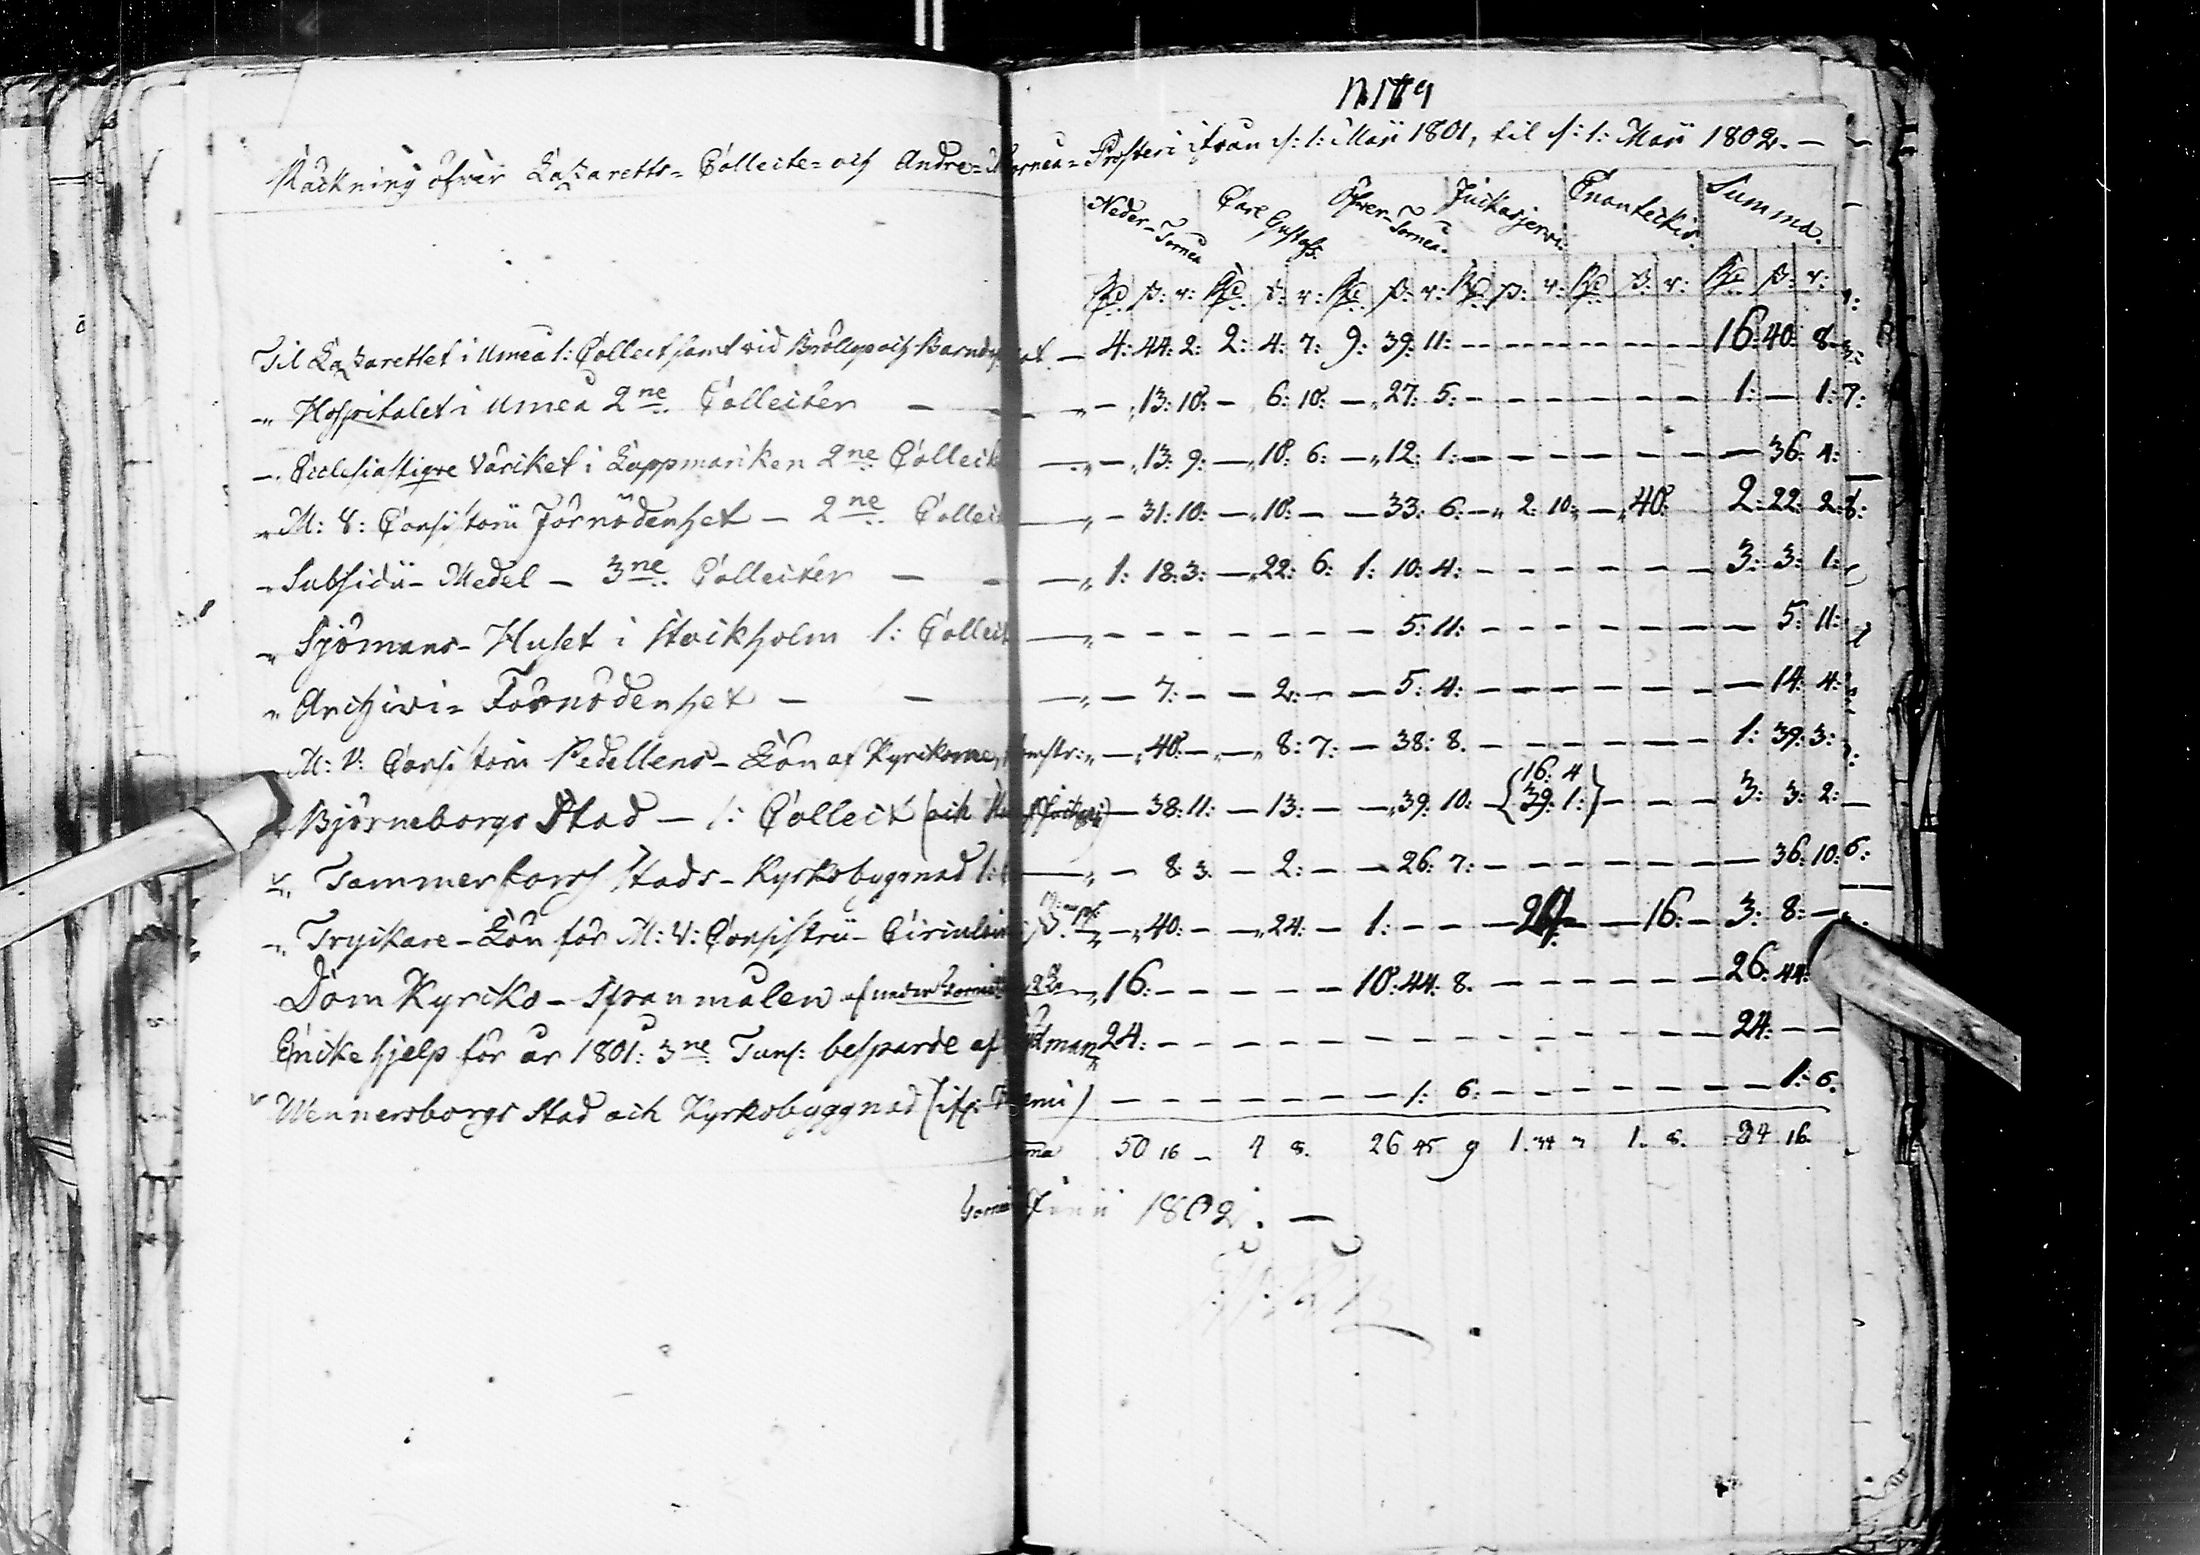 Räckning öfver Lazaretts- Collecte- och Andre- Torneå- Prosteri ifrån d: 1: Maii 1801, til d: 1: Maii 1802. —
Neder-Torneå Carl Gustafs: Öfver-Torneå. Juckasjervi: Enonteckis. Summa.
Rd ß: r: Rd ß: r: Rd ß: r: Rd ß: r: Rd ß: r: Rd ß: r:
Til Lazarettet i Umeå 1: Collect samt vid Bröllop och Barndop — 4: 44: 2: 2: 4: 7: 9: 39: 11: — — — — 16: 40: 8
„ Hospitalet i Umeå 2ne Collecter — — „ — „ 13: 10: — „ 6: 10: — „ 27: 5: — — — — 1: — 1:
„ Ecclesiastique Värcket i Lappmarcken 2ne Collect — „ — „ 13: 9: — „ 10: 6: — „ 12: 1: — — — — 36: 4:
„ M: V: Consistorii Förnödenhet — 2ne Collect — „ — 31: 10: — „ 10: — — 33: 6: — „ 2: 10: — „ 40: 2: 22: 2:
„ Subsidii- Medel — 3ne Collecter — — „ 1: 18: 3: — „ 22: 6: 1: 10: 4: — — — — 3: 3: 1:
„ Sjömans- Huset i Stockholm 1: Collect — „ — — — — — 5: 11: — — — — 5: 11:
„ Archivi- Förnödenhet — — „ — 7: — — 2: — — 5: 4: — — — — 14: 4:
M: V: Consistorii Pedellens- Lön af Kyrckorne, — „ 40: — „ — „ 8: 7: — 38: 8. — — — — 1: 39: 3:
„ Björneborgs Stad — 1: Collect (och — 38: 11: — 13: — — „ 39: 10: — {16: 4 39: 1:} — — — 3: 3: 2:
„ Tammerfors Stads- Kyrkobyggnad 1: — „ — 8: 3. — 2: — — 26: 7: — — — — 36: 10:
„ Tryckare- Lön för M: V: Consistorii- — „ 40: — — „ 24: — 1: — — — — 16: — 3: 8: —
Dom Kyrcko- Spanmålen af „ 16: — — — — 10: 44: 8. — — — — 26: 44:
Encke hjelp för år 1801: 3ne Tunn: besparde af 24: — — — — — — — 24: — —
Wennersborgs Stad och Kyrkobyggnad — — — — — 1: 6: — — — — 1: 6.
50 16 — 7 8. 26 45 9 1. 34 3 1. 8. 84 16.
Junii 1802. —